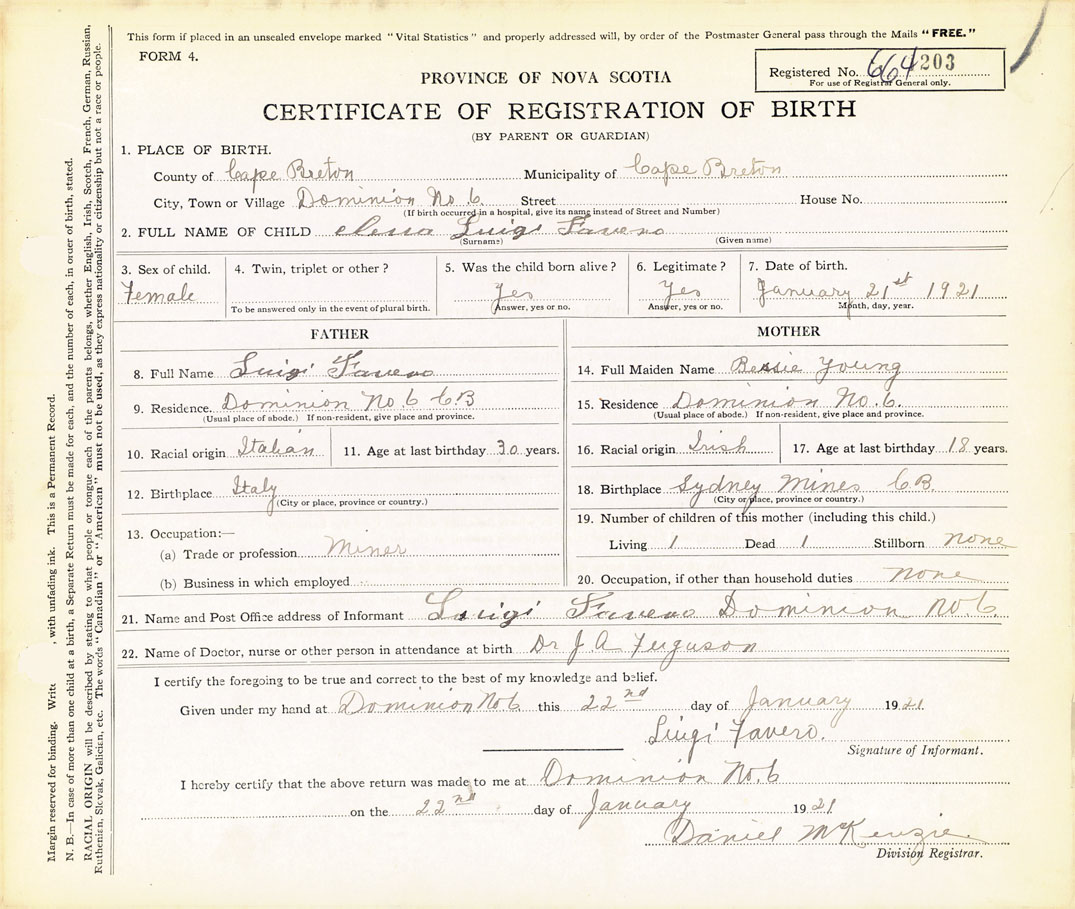 This form if placed in an unsealed envelope marked "Vital Statistics" and properly addressed will, by order of the Postmaster General pass through the Mails "FREE."
FORM 4.
Registered No. 664 203
For use of Registrar General only.
PROVINCE OF NOVA SCOTIA
CERTIFICATE OF REGISTRATION OF BIRTH
(BY PARENT OR GUARDIAN)
1. PLACE OF BIRTH.
County of Cape Breton Municipality of Cape Breton
City, Town or Village Dominion No. 6 Street House No.
(If birth occurred in a hospital, give its name instead of Street and Number)
2. FULL NAME OF CHILD Elena Luigi Favero
(Surname) (Given name)
3. Sex of child. 4. Twin, triplet or other? 5. Was the child born alive? 6. Legitimate? 7. Date of birth.
Female Yes Yes January 21st 1921
To be answered only in the event of plural birth. Answer, yes or no. Answer, yes or no. Month, day, year.
FATHER
8. Full Name Luigi Favero
9. Residence. Dominion No. 6 CB
(Usual place of abode.) If non-resident, give place and province.
10. Racial origin Italian 11. Age at last birthday 30 years.
12. Birthplace Italy
(City or place, province or country.)
13. Occupation:—
(a) Trade or profession Miner
(b) Business in which employed
MOTHER
14. Full Maiden Name Bessie Young
15. Residence Dominion No. 6.
(Usual place of abode.) If non-resident, give place and province.
16. Racial origin Irish 17. Age at last birthday 18 years.
18. Birthplace Sydney Mines CB.
(City or place, province or country.)
19. Number of children of this mother (including this child.)
Living 1 Dead 1 Stillborn None
20. Occupation, if other than household duties None
21. Name and Post Office address of Informant Luigi Favero Dominion No. 6
22. Name of Doctor, nurse or other person in attendance at birth Dr J A Ferguson
I certify the foregoing to be true and correct to the best of my knowledge and belief.
Given under my hand at Dominion No 6 this 22nd day of January 1921
Luigi Favero.
Signature of Informant.
I hereby certify that the above return was made to me at Dominion No. 6
on the 22nd day of January 1921
Daniel McKenzie
Division Registrar.
Margin reserved for binding. Writ , with unfading ink. This is a Permanent Record.
N. B.—In case of more than one child at a birth, a Separate Return must be made for each, and the number of each, in order of birth, stated.
RACIAL ORIGIN will be described by stating to what people or tongue each of the parents belongs, whether English, Irish, Scotch, French, German, Russian,
Ruthenian, Slovak, Galician, etc. The words "Canadian" or "American" must not be used, as they express nationality or citizenship but not a race or people.